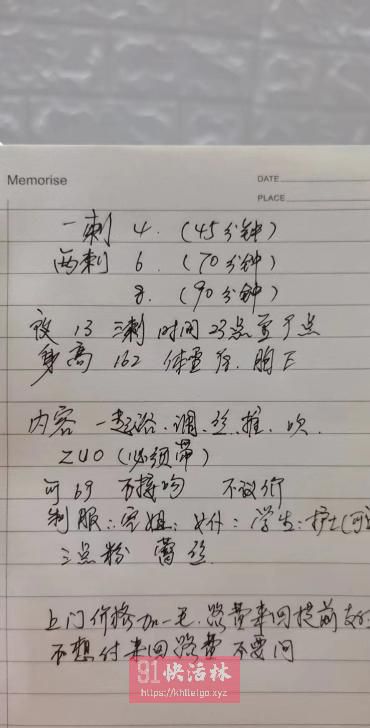 Memorise
DATE
PLACE
一刺 4. (45分钟)
两刺 6. (70分钟)
8. (90分钟)
夜 13 三刺 时间 23点至7点
身高 162 体重 胸E
内容 一起浴.调.丝.推.吹.
ZUO (必须带)
可69 不接吻 不议价
制服: 空姐: 女仆: 学生: 护士(可
三点粉 蕾丝
上门价格加一毛.路费来回提前支付
不想付来回路费 不要问
91快活林
https://khlleigo.xyz